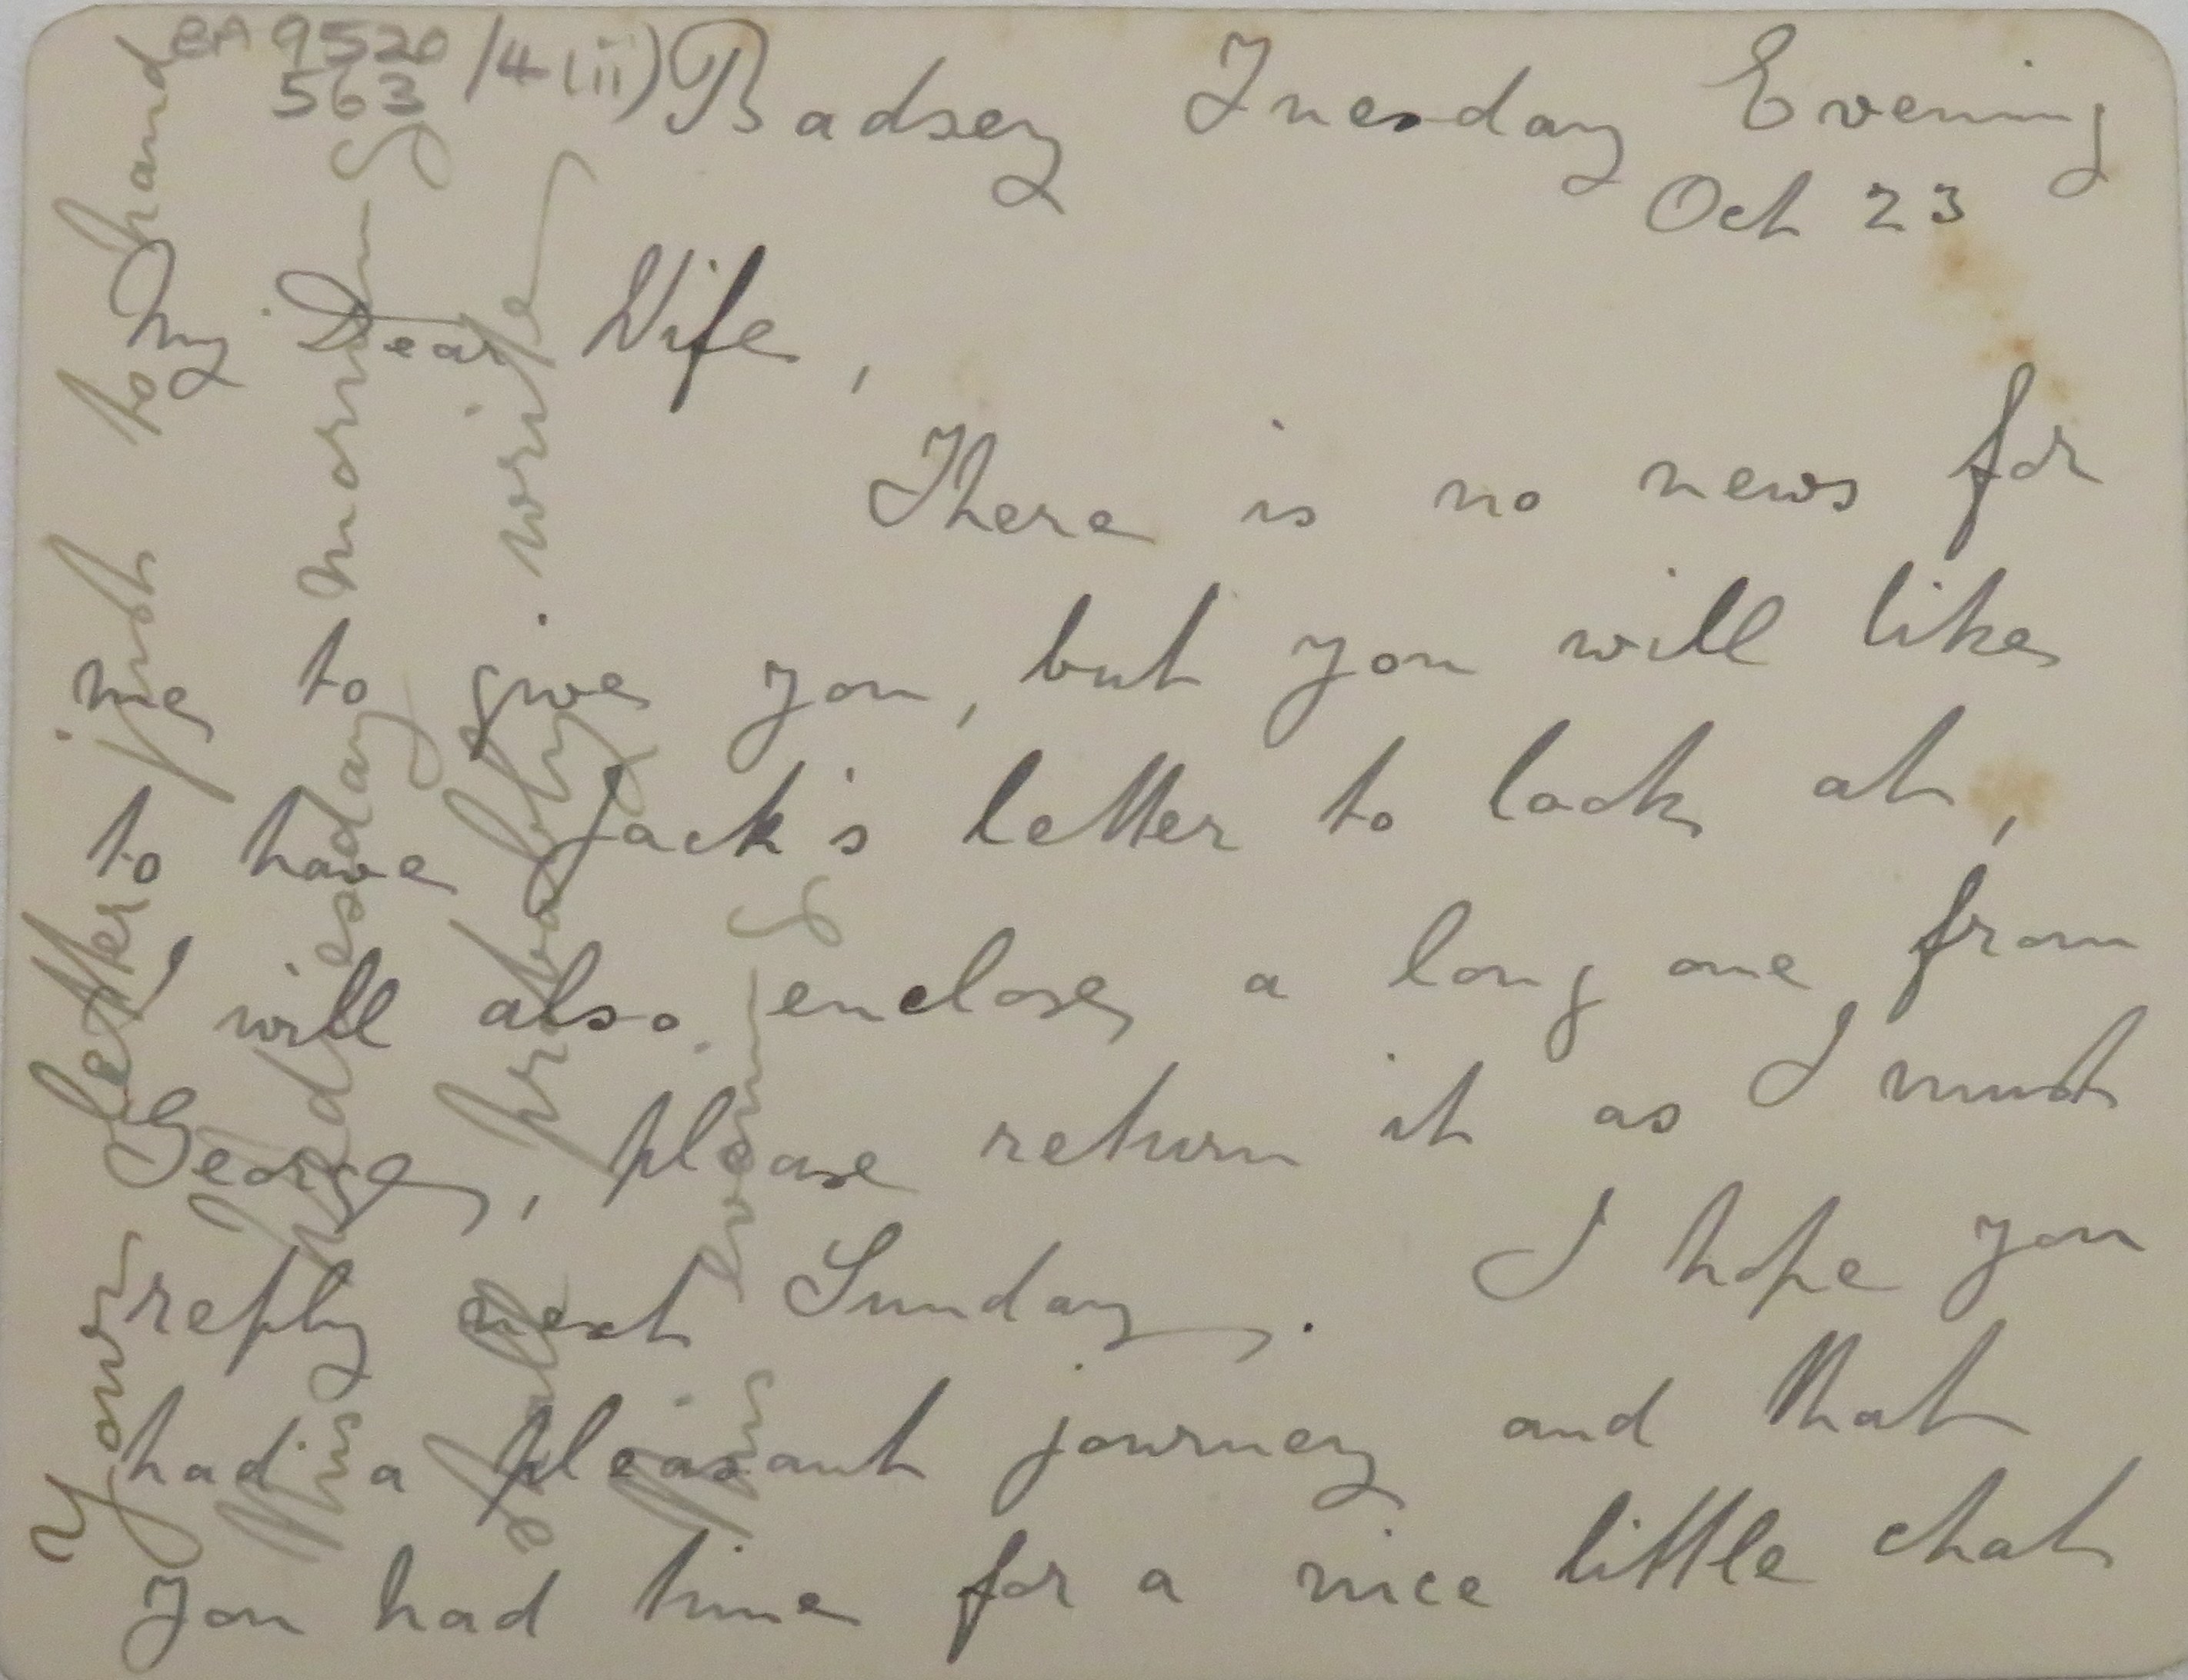 BA 9520 /4 (ii)
563
Badsey Tuesday Evening
Oct 23
My Dear Wife,
There is no news for
me to give you, but you will like
to have Jack's letter to look at,
I will also enclose a long one from
George, please return it as I must
reply next Sunday. I hope you
had a pleasant journey and that
you had time for a nice little chat
Your letters just to hand
this Wednesday morning
I shall probably write
this evening